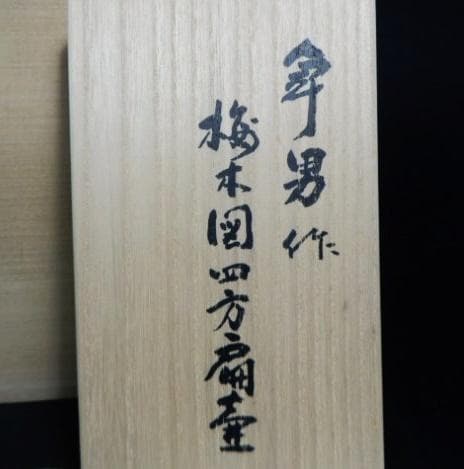 男作
梅木図四方扁壷